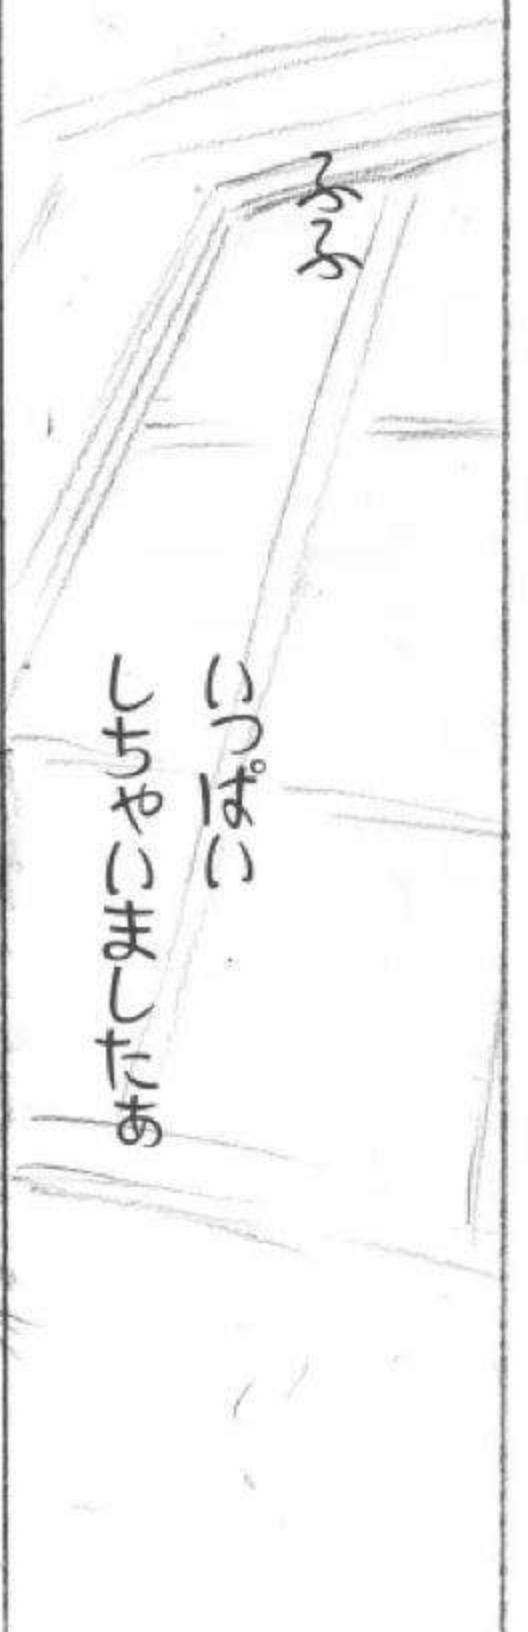 ふふ
いっぱい
しちゃいましたぁ